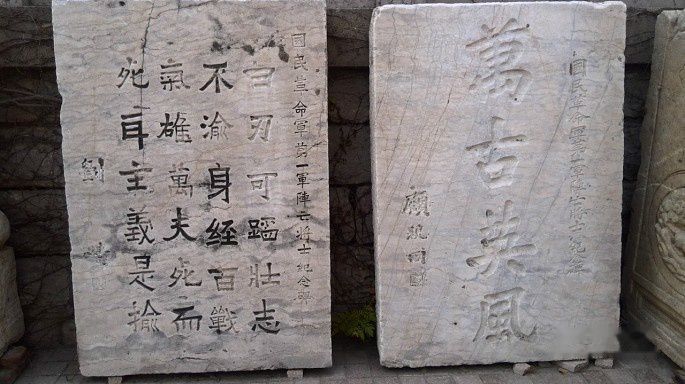 國民革命軍第一軍陣亡將士紀念碑
白刃可蹈壯志
不渝身經百戰
氣雄萬夫死而
死耳主義是揄
劉峙
國民革命軍第一軍陣亡將士紀念碑
萬古英風
顧祝同題